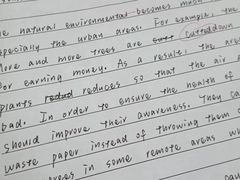 e natural environmental becomes much
especially the urban areas. For example, the
More and more trees are cutteddown
for earning money. As a result, the area
plants reduces so that the air
bad. In order to ensure the health of
should improve their awareness. They ca
waste paper instead of throwing them
trees in some remote areas wh